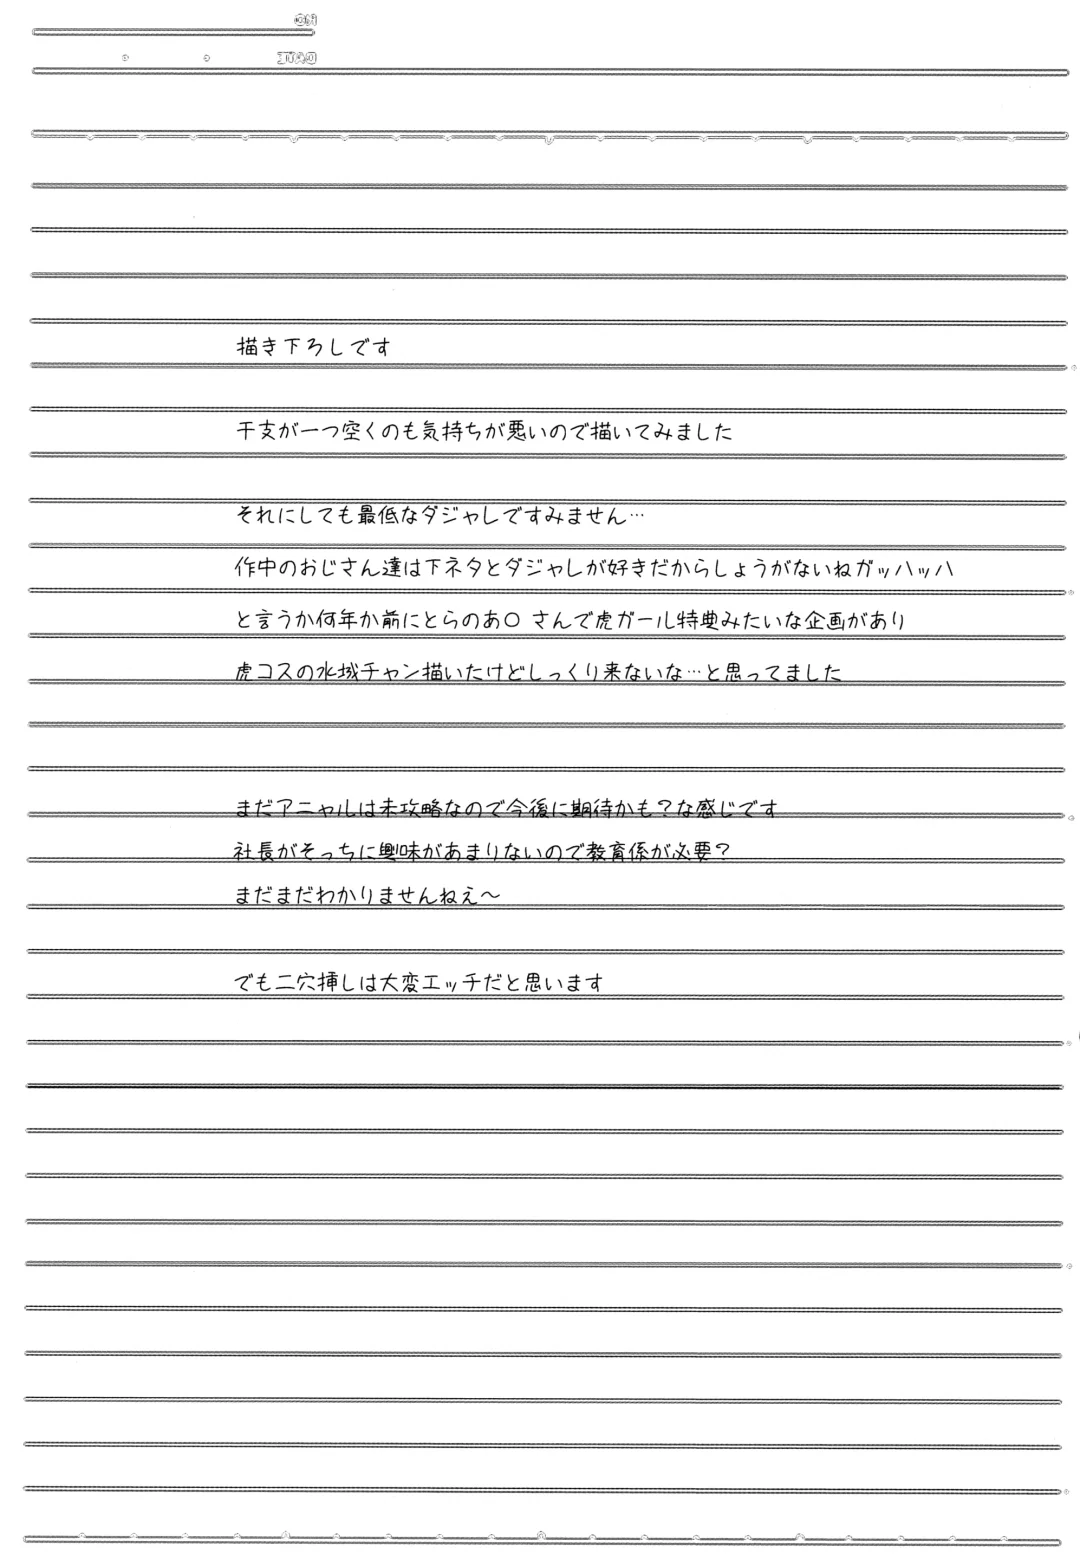 No.
DATE
描き下ろしです
干支が一つ空くのも気持ちが悪いので描いてみました
それにしても最低なダジャレですみません…
作中のおじさん達は下ネタとダジャレが好きだからしょうがないねガッハッハ
と言うか何年か前にとらのあ〇 さんで虎ガール特典みたいな企画があり
虎コスの水城チャン描いたけどしっくり来ないな…と思ってました
まだアニャルは未攻略なので今後に期待かも？な感じです
社長がそっちに興味があまりないので教育係が必要？
まだまだわかりませんねえ～
でも二穴挿しは大変エッチだと思います